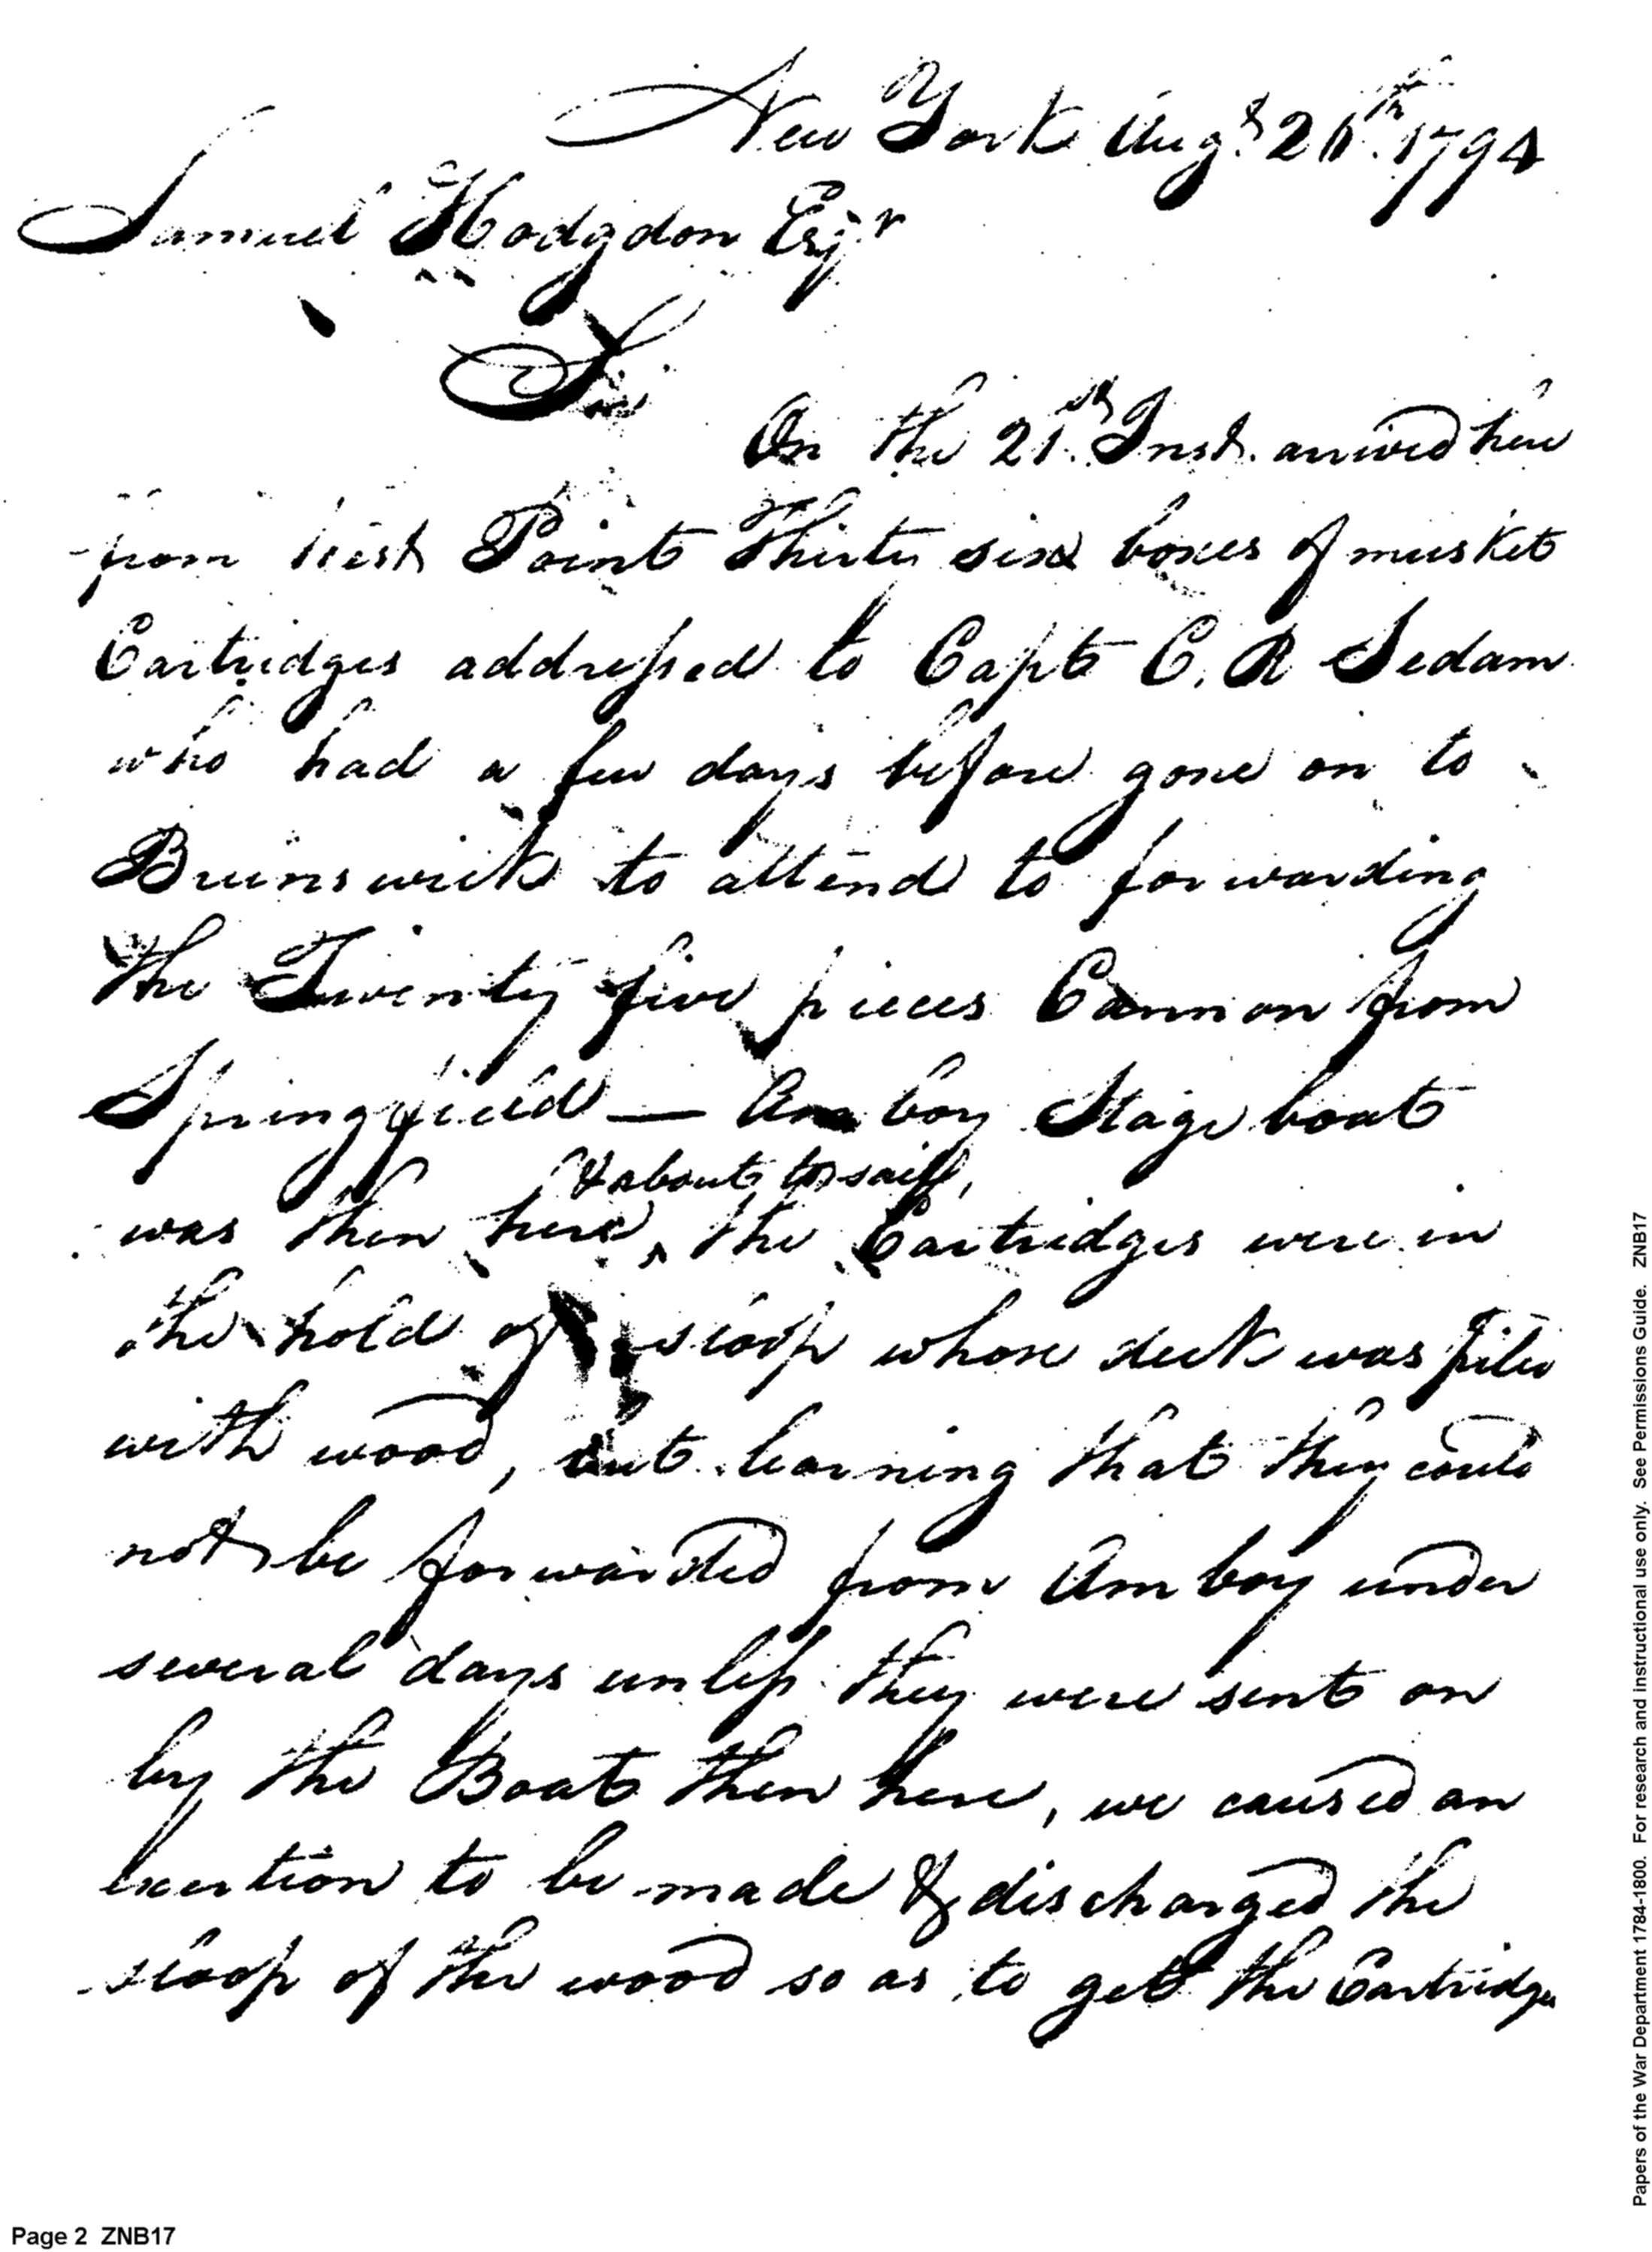 New York Augt 26th. 1794
Samuel Hodgdon Esqr
Sir
On the 21st. Inst. arrived here
from West Point Thirty six boxes of musket
Cartridges addressed to Capt C. R Sedam
who had a few days before gone on to
Brunswick to attend to forwarding
the Twenty five pieces Cannon from
Springfield — Amboy Stage boat
& about to sail,
was then here ^ the Cartridges were in
the hold of sloop whose deck was filed
with wood, but learning that they could
not be forwarded from Amboy under
several days unless they were sent on
by the Boat then here, we caused an
exertion to be made & discharged the
sloop of the wood so as to get the Cartridges
Papers of the War Department 1784-1800. For research and instructional use only. See Permissions Guide. ZNB17
Page 2 ZNB17